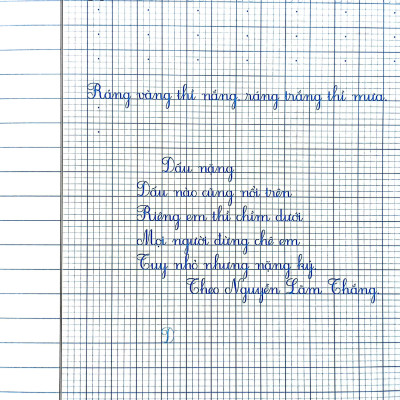 Ráng vàng thì nắng, ráng trắng thì mưa.
Dấu nặng
Dấu nào cũng nổi trên
Riêng em thì chìm dưới
Mọi người đừng chê em
Tuy nhỏ nhưng nặng ký.
Theo Nguyễn Lãm Thắng.
D